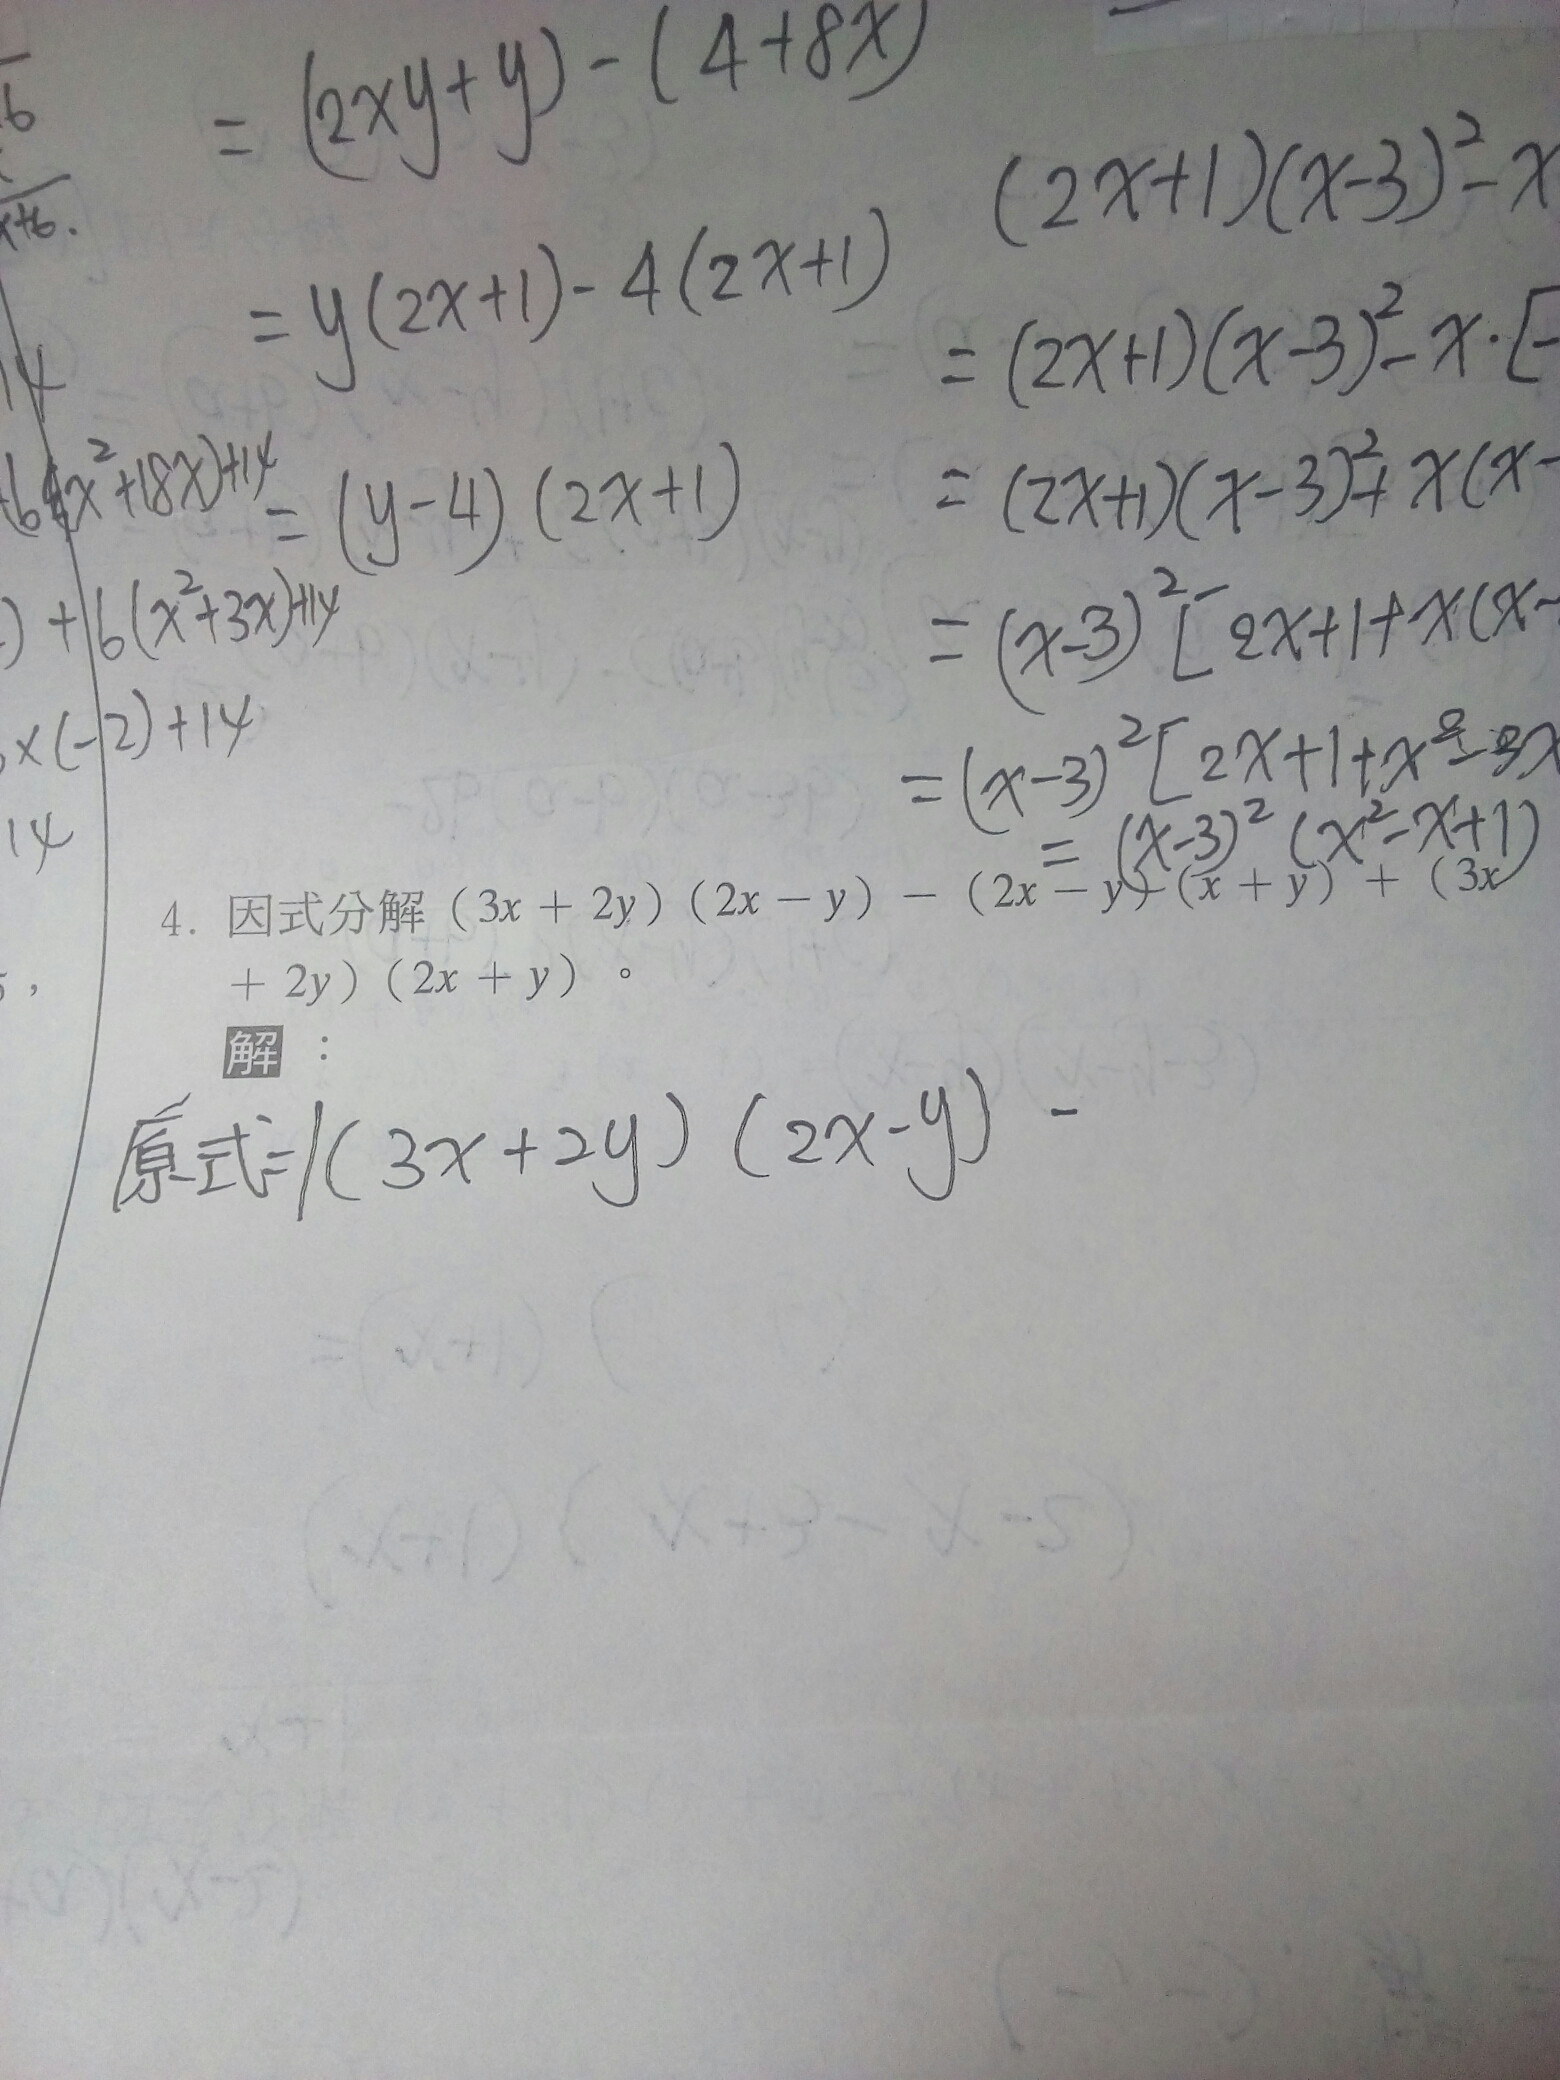 6
x+6.
= (2xy+y)-(4+8x)
= y(2x+1)-4(2x+1)
= (y-4)(2x+1)
14
x²+18x)+14
) + 6(x²+3x)+14
x(-2)+14
14
(2x+1)(x-3)²-x
= (2x+1)(x-3)²-x·[-
= (2x+1)(x-3)²+x(x-
= (x-3)²[2x+1+x(x-
= (x-3)²[2x+1+x²-3x
= (x-3)²(x²-x+1)
4. 因式分解(3x + 2y)(2x - y) - (2x - y)(x + y) + (3x
+ 2y)(2x + y)。
,
解：
原式=(3x+2y)(2x-y) -